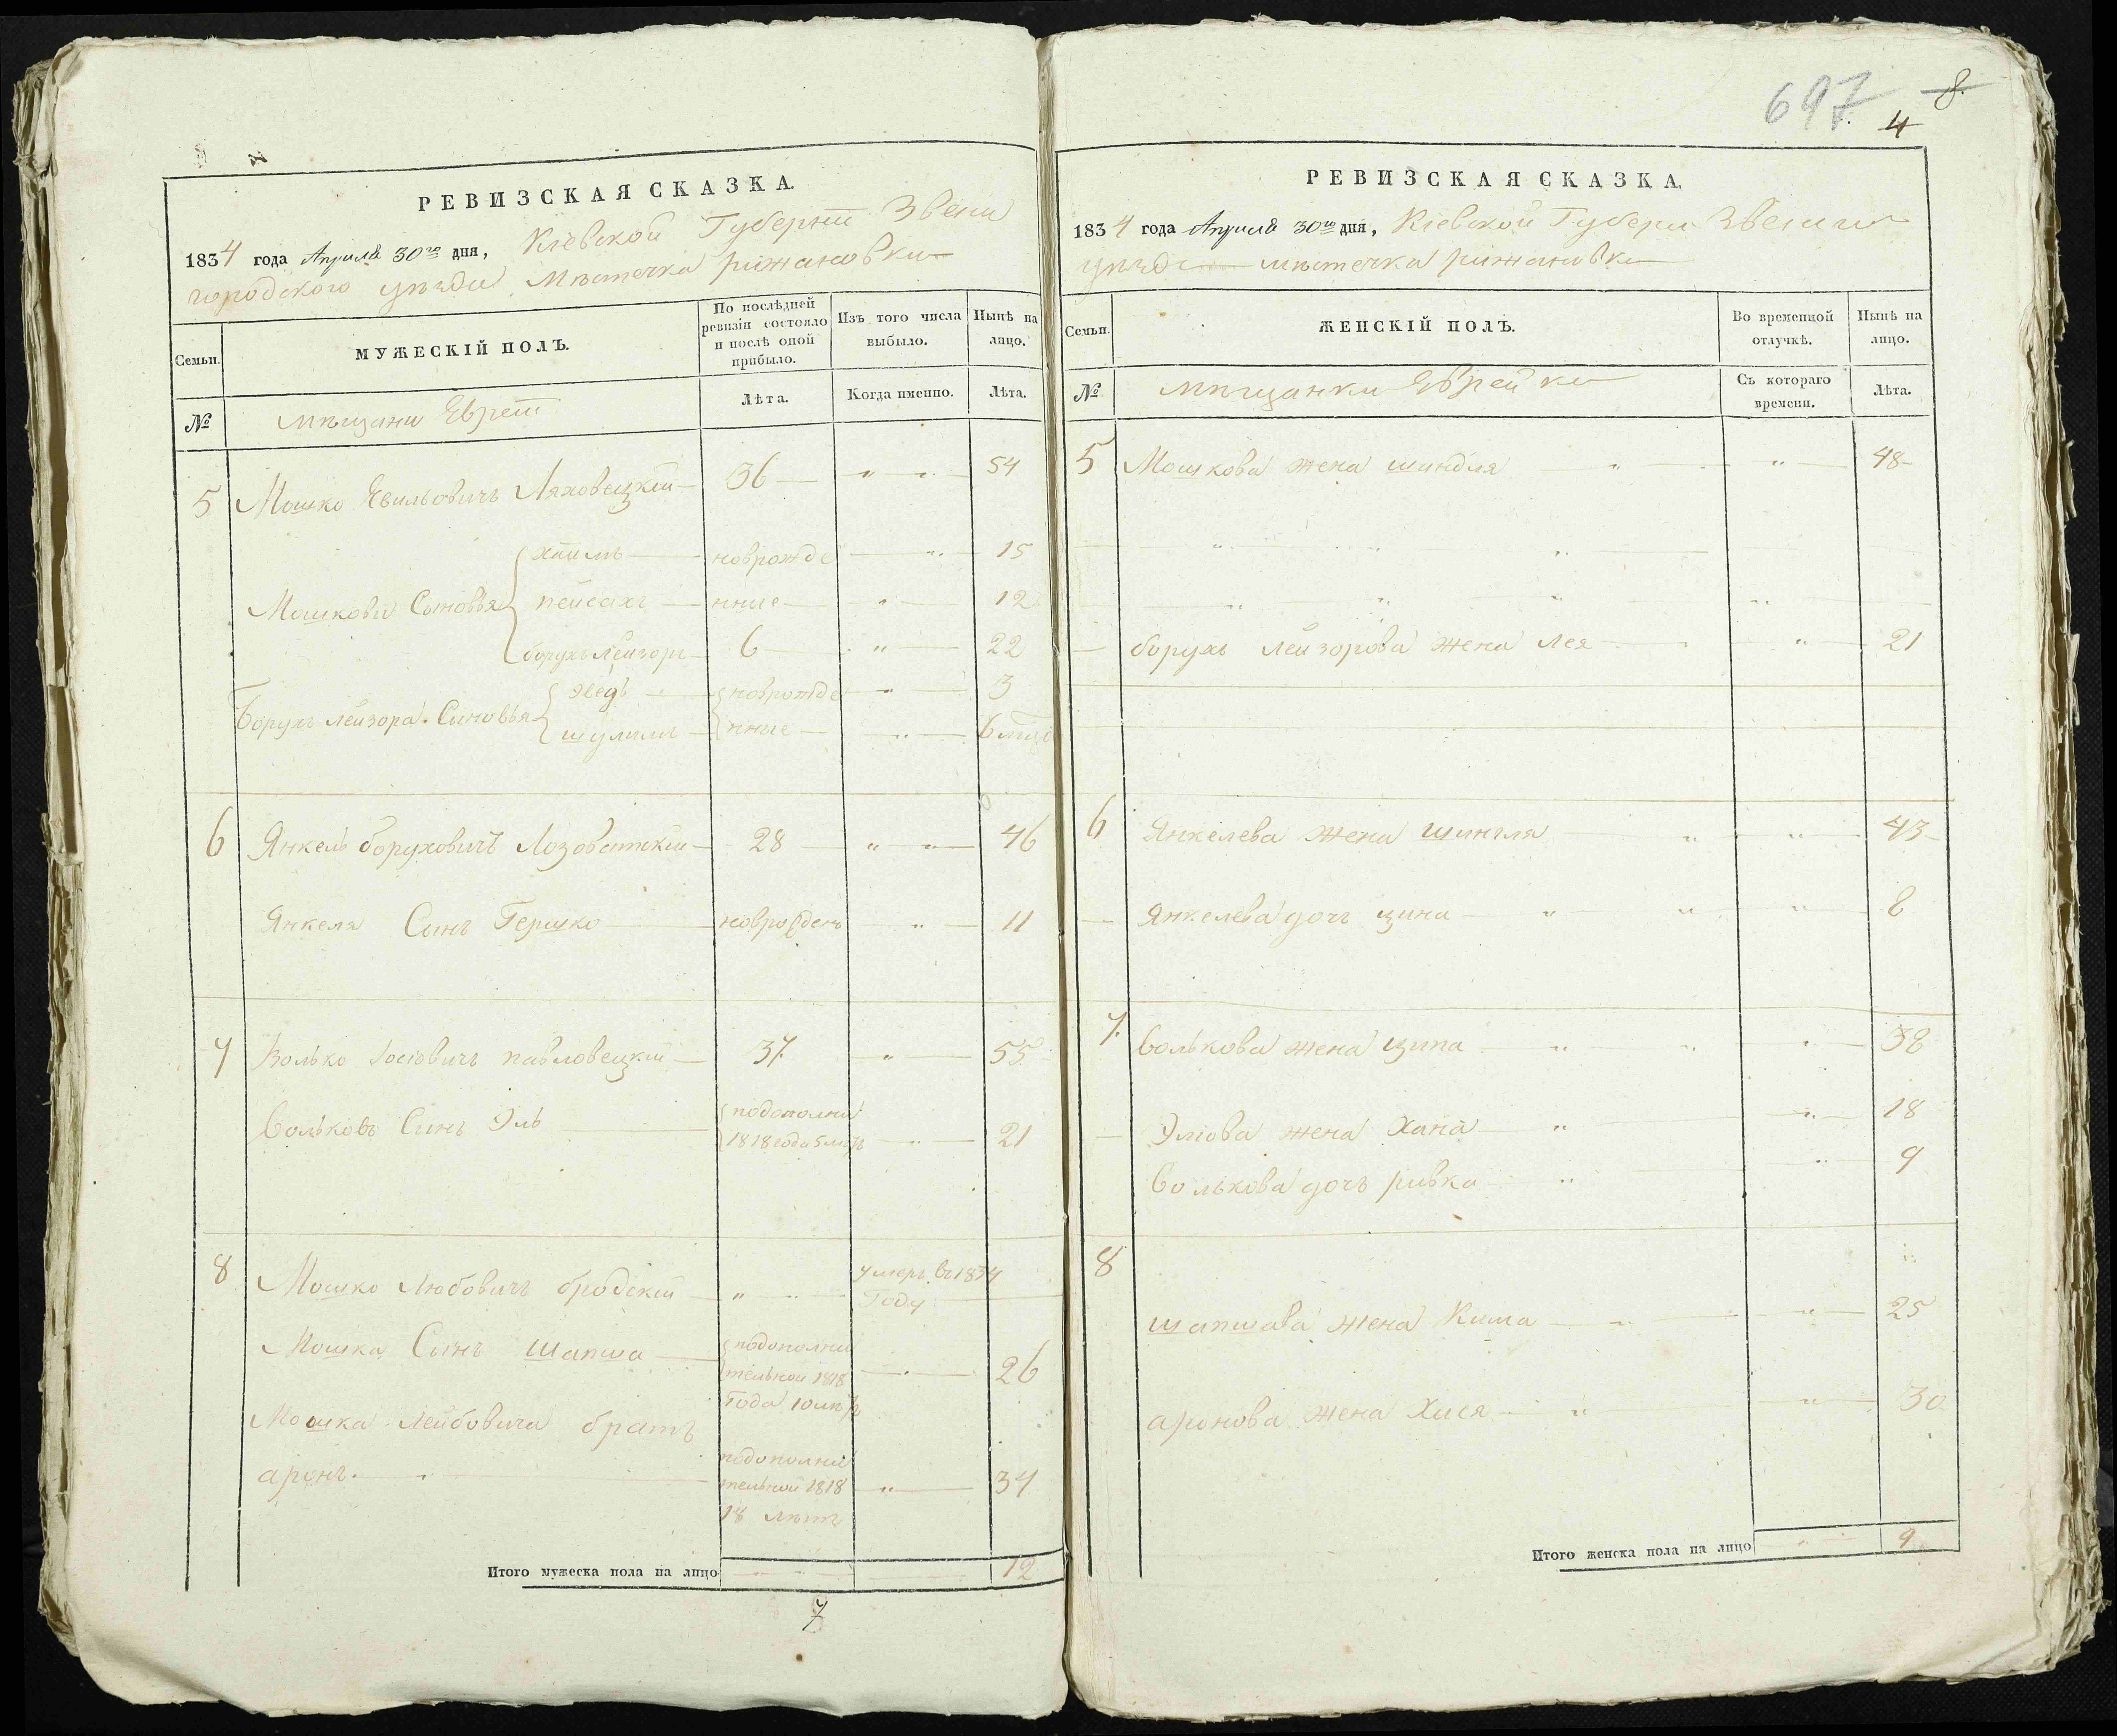 РЕВИЗСКАЯ СКАЗКА.
1834 года Апреля 30го дня, Кіевской Губерніи Звени
городского уѣзда Мѣстечка рижановки
Семьи.
МУЖЕСКІЙ ПОЛЪ.
По послѣдней ревизіи состояло и послѣ оной прибыло.
Изъ того числа выбыло.
Нынѣ на лицо.
№
мѣщане Евреи
Лѣта.
Когда именно.
Лѣта.
5 Мошко Ляховецкій 36 " " 54
хаимъ новрожде " 15
Мошковы Сыновья пейсахъ нные " 12
борухъ лейзоръ 6 " 22
новрожде " 3
Борухъ лейзора Сыновья шулимъ нные " 6
6 Янкель боруховичъ Лозоватскій 28 " " 46
Янкеля Сынъ Гершко новрожденъ " 11
7 Волько Іосіовичъ павловецкій 37 " 55
Вольковъ Сынъ Эль подополни
1818 года 5 " 21
8 Мошко Любовичъ бродскій " " умеръ въ 1834
Году
Мошка Сынъ Шапша подополни
тельной 1818 " 26
Года 10
Мошка Лейбовича братъ
аронъ. подополни
тельной 1818 " 34
18 лѣтъ
Итого мужеска пола на лицо 12
7
697 8.
4
РЕВИЗСКАЯ СКАЗКА.
1834 года Апреля 30го дня, Кіевской Губерн Звениго
уѣзда мѣстечка рижановки
Семьи.
ЖЕНСКІЙ ПОЛЪ.
Во временной отлучкѣ.
Нынѣ на лицо.
№
мѣщанки Еврейки
Съ котораго времени.
Лѣта.
5 Мошкова жена шиндля " " 48
борухъ лейзорова жена Лея " " 21
6 Янкелева жена шингля " " 43
Янкелева дочь цина " " " 8
7. Волькова жена ципа " " " 38
Эліова жена Хана " " 18
Волькова дочъ ривка " " 9
8
шапшова жена Кима " " 25
аронова жена Хися " " 30
Итого женска пола на лицо " 9